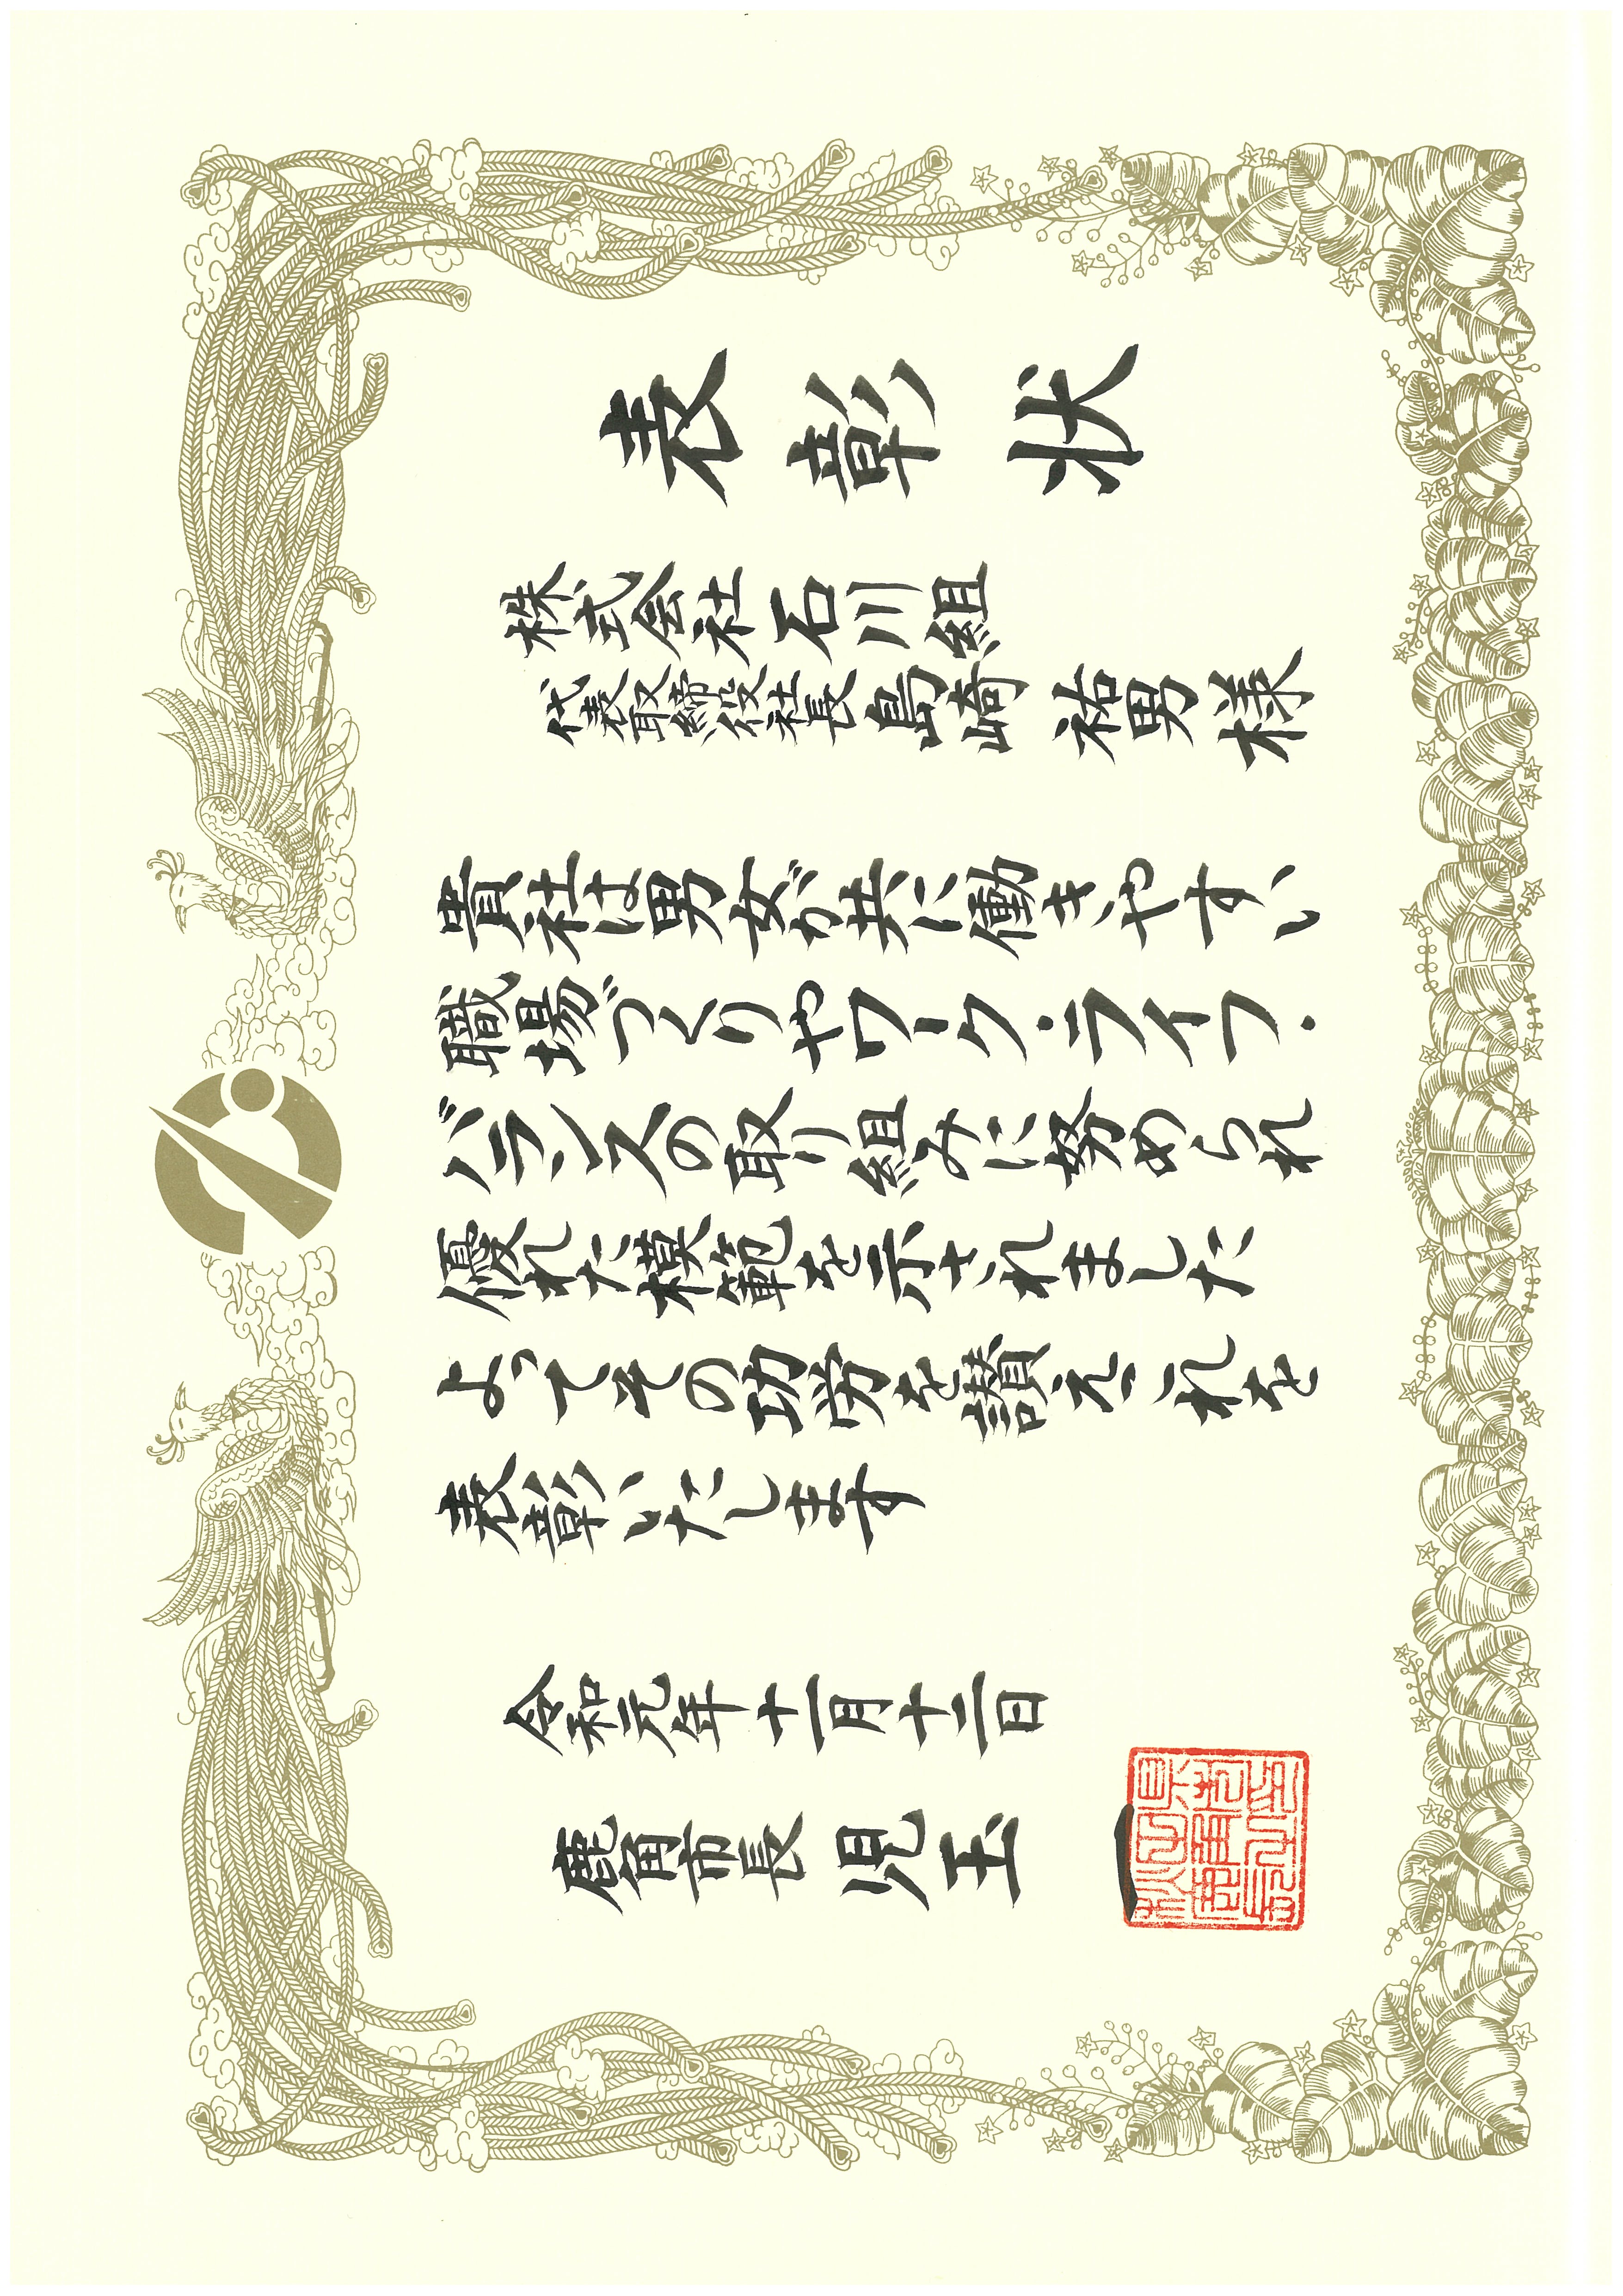 表彰状
株式会社石川組
代表取締役社長 島崎 祐男 様
貴社は男女が共に働きやすい
職場づくりやワーク・ライフ・
バランスの取り組みに努められ
優れた模範を示されました
よってその功労を讃えこれを
表彰いたします
令和元年十一月十二日
鹿角市長 児玉 一